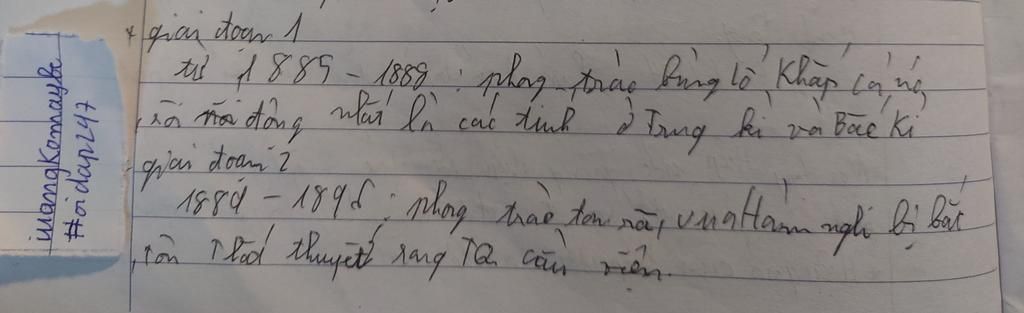 * giai đoạn 1
từ 1885 - 1888 : phong trào bùng lổ, Khắp cả nc,
sôi nổi đông nhất là các tỉnh ở Trung kì và Bắc Kì
giai đoạn 2
1889 - 1896 : phong trào tan rã, vua Hàm nghi bị bắt
tôn thất thuyết sang TQ cầu viện.
iwangkomaybe
#oidap247